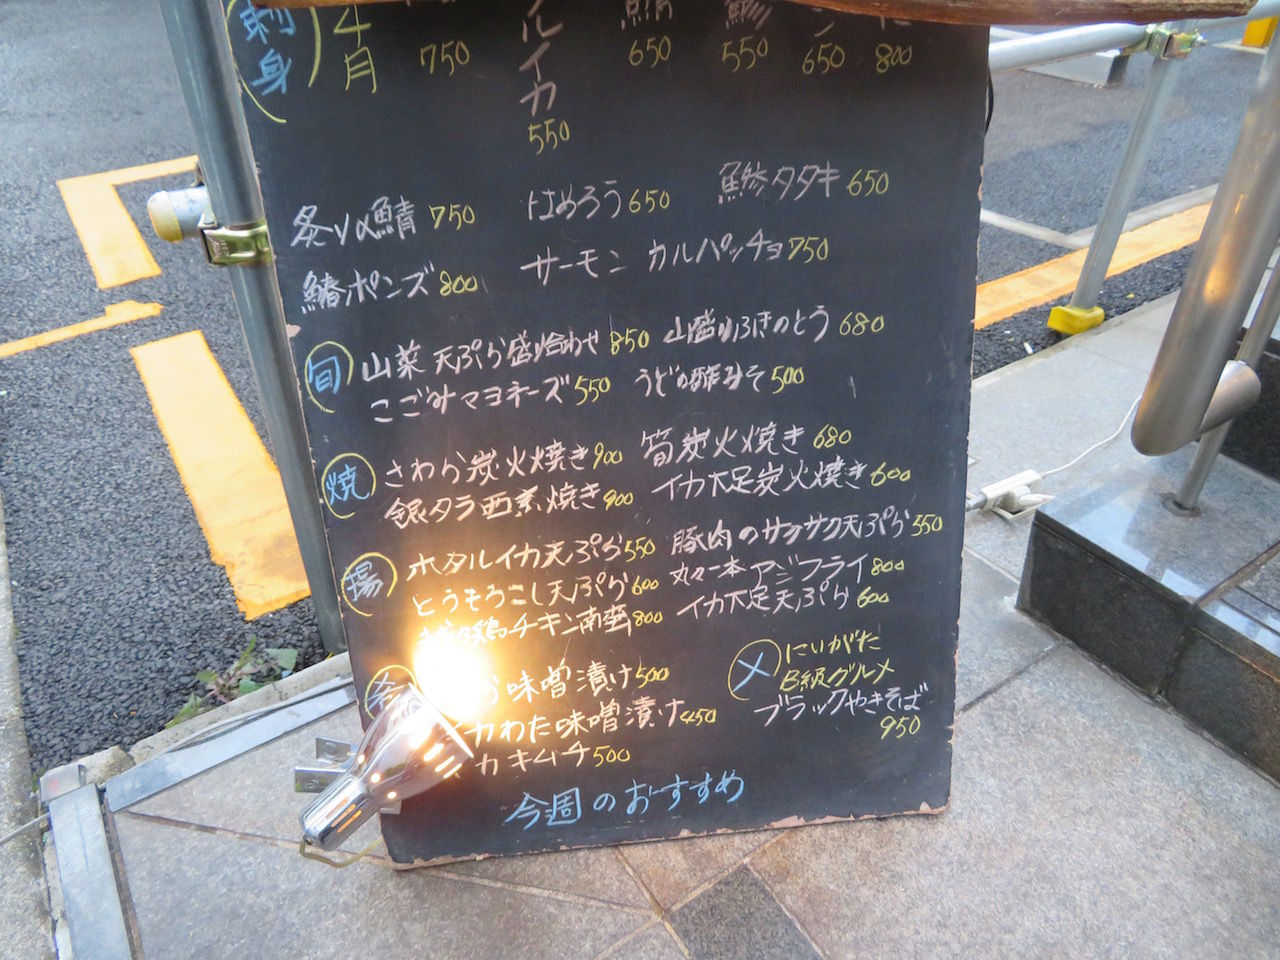 刺身 4月
750 ルイカ 550 650 550 650 800
炙りメ鯖 750 はめろう 650 鯵タタキ 650
鰆ポンズ 800 サーモン カルパッチョ 750
旬 山菜 天ぷら盛り合わせ 850 山盛りふきのとう 680
こごみマヨネーズ 550 うどの酢みそ 500
焼 さわら炭火焼き 900 筍炭火焼き 680
銀タラ西京焼き 900 イカ下足炭火焼き 600
揚 ホタルイカ天ぷら 550 豚肉のサクサク天ぷら 550
とうもろこし天ぷら 600 丸々一本アジフライ 800
鶏チキン南蛮 800 イカ下足天ぷら 600
味噌漬け 500
カわた味噌漬け 450
カキムチ 500
〆 にいがた
B級グルメ
ブラックやきそば
950
今週のおすすめ